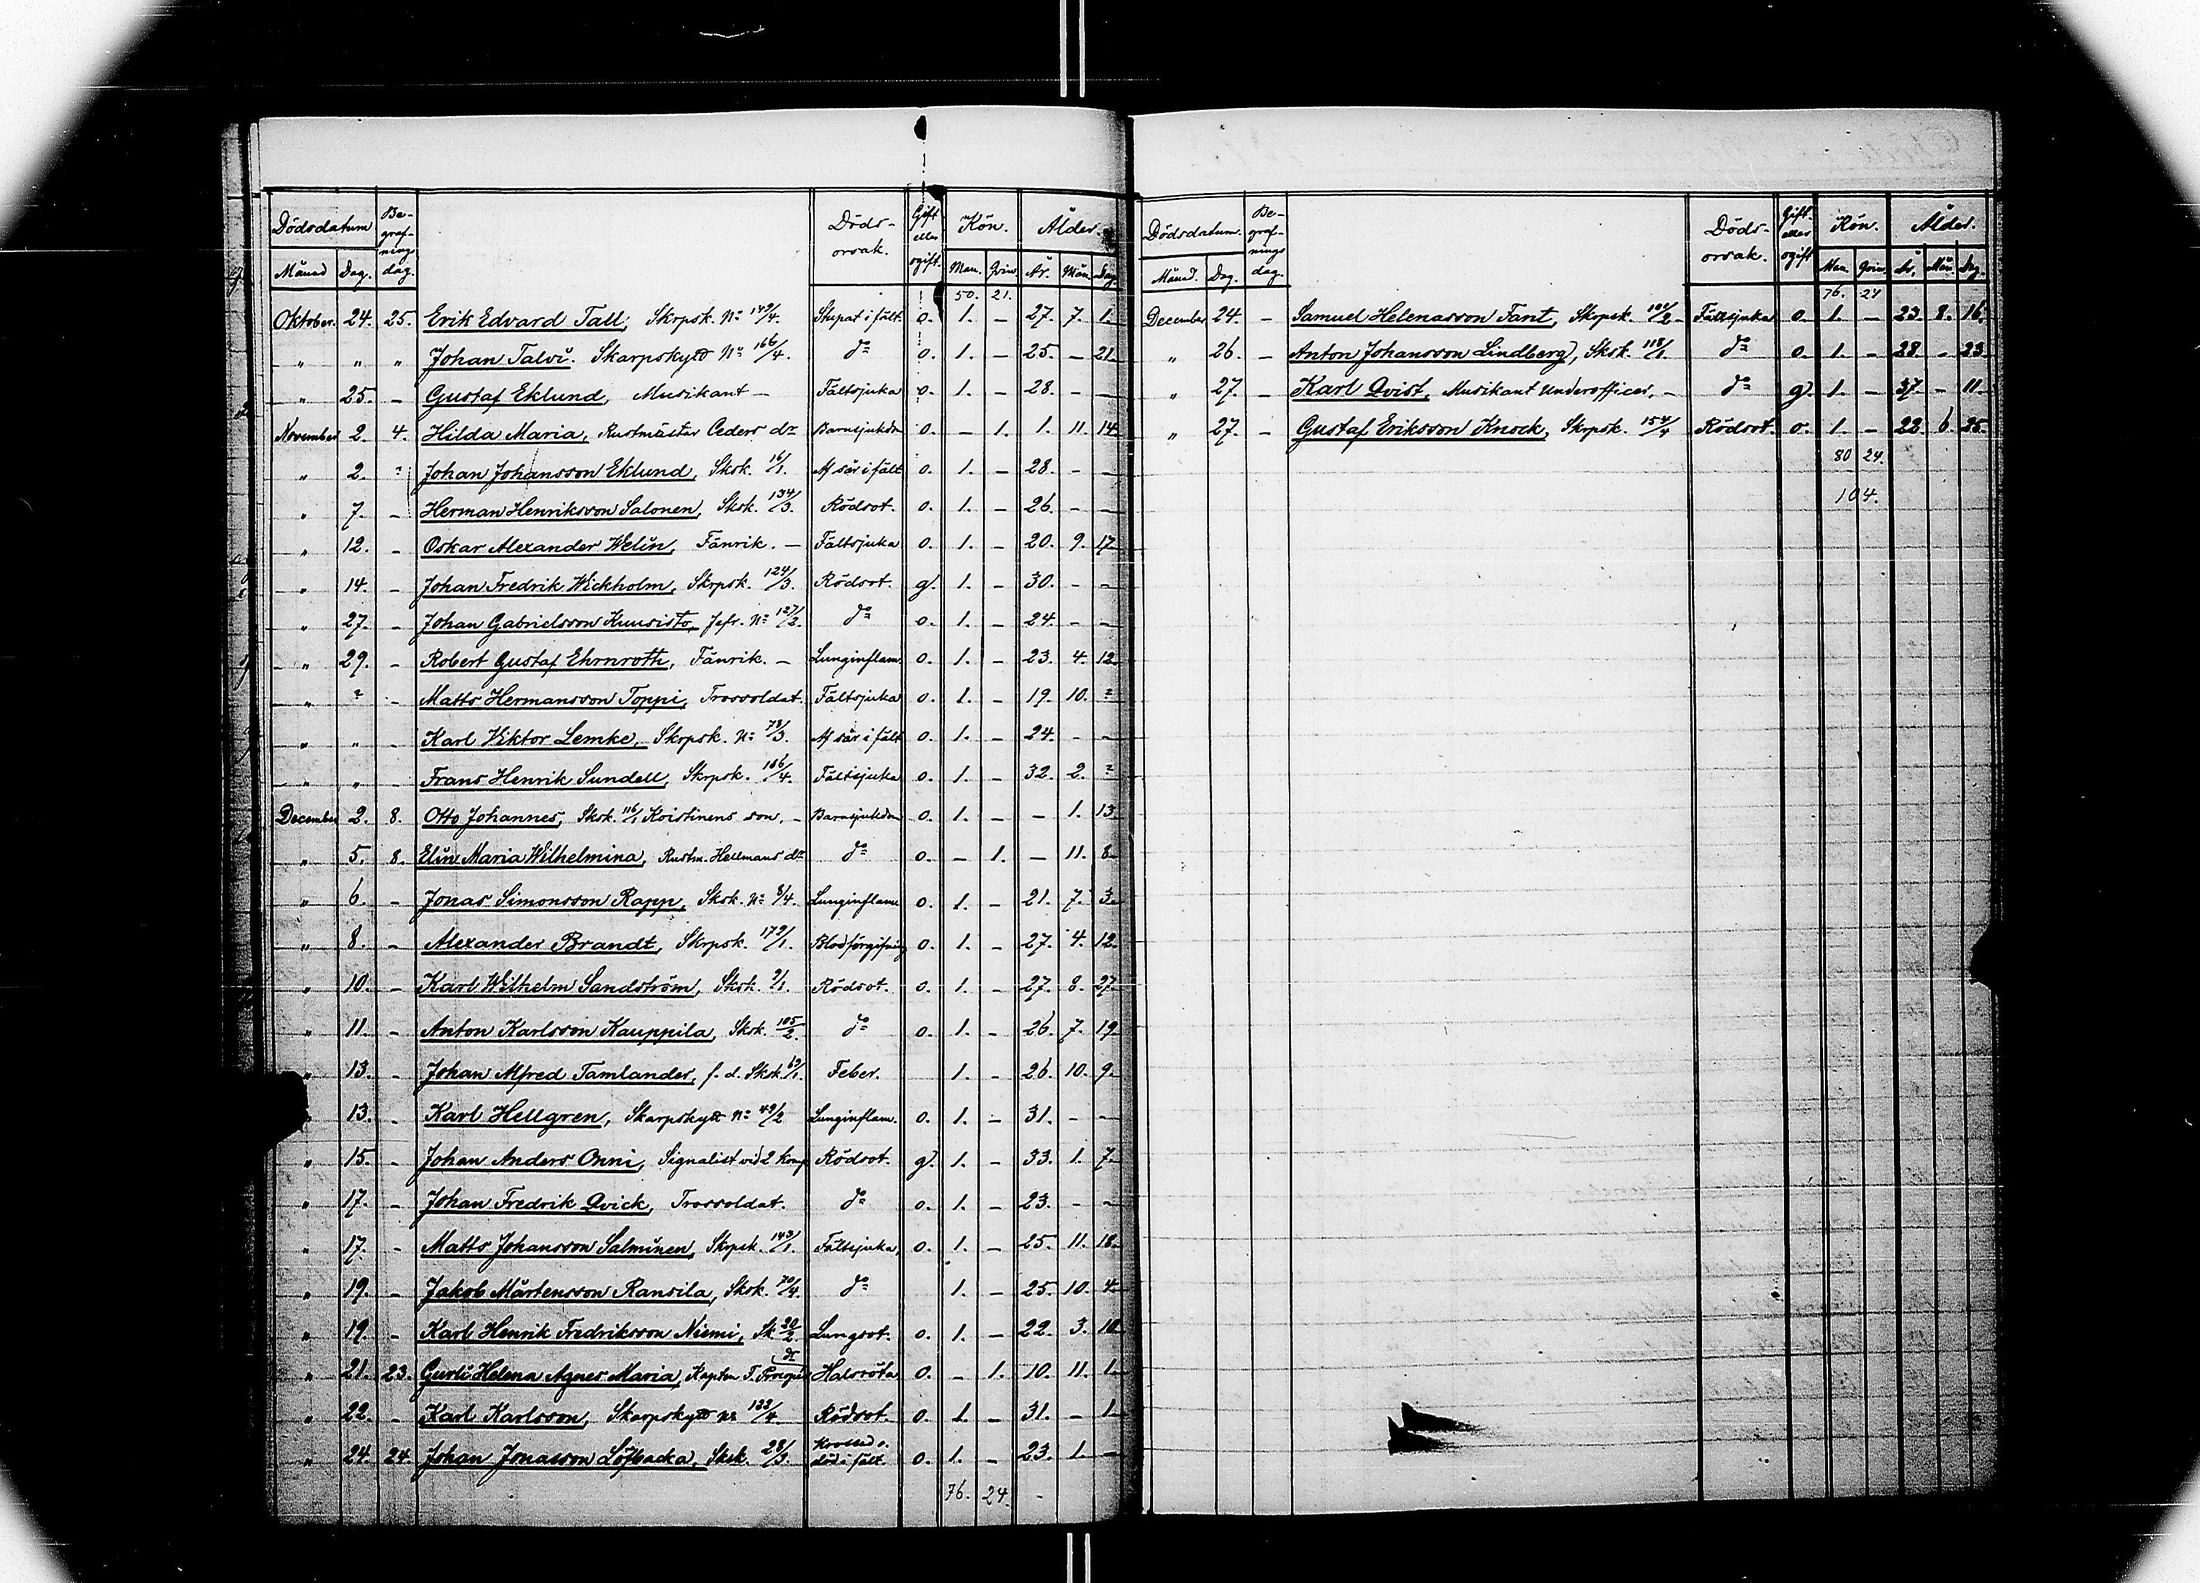 Dödsdatum Be-grafnings dag. Döds-orsak. Gift eller ogift. Kön. Ålder.
Månad Dag. Man. Qvin. År. Mån. Dag.
50. 21.
Oktober. 24. 25. Erik Edvard Tall, Skrpsk. No 149/4. Stupat i fält. o. 1. – 27. 7. 1.
" " " Johan Talvi. Skarpskytt No 166/4. do o. 1. – 25. – 21.
" 25. – Gustaf Eklund, Musikant – Fältsjuka o. 1. – 28. – –
November 2. 4. Hilda Maria, Rustmästar Ceders dr Barnsjukdm o. – 1. 1. 11. 14.
" 2. ? Johan Johansson Eklund, Sksk. 16/1. Af sår i fält o. 1. – 28. – –
" 7. – Herman Henriksson Salonen, Sksk. 134/3. Rödsot. o. 1. – 26. – –
" 12. – Oskar Alexander Welin, Fänrik. – Fältsjuka o. 1. – 20. 9. 17.
" 14. – Johan Fredrik Wickholm, Skrpsk. 124/3. Rödsot. g. 1. – 30. – –
" 27. – Johan Gabrielsson Kuusisto, Jefr. No 127/2. do o. 1. – 24. – –
" 29. – Robert Gustaf Ehrnroth, Fänrik. – Lunginflam. o. 1. – 23. 4. 12.
" ? – Matts Hermansson Toppi, Trossoldat. Fältsjuka o. 1. – 19. 10. ?
" " – Karl Viktor Lemke, Skrpsk. No 78/3. Af sår i fält o. 1. – 24. – –
" " – Frans Henrik Sundell, Skrpsk. 106/4. Fältsjuka o. 1. – 32. 2. ?
December 2. 8. Otto Johannes, Sksk. 116/1 Koistinens son. – Barnsjukdm o. 1. – – 1. 13.
" 5. 8. Elin Maria Wilhelmina, Rustm. Hellmans dr do o. – 1. – 11. 8.
" 6. – Jonas Simonsson Rapp, Sksk. No 8/4. Lunginflam. o. 1. – 21. 7. 3.
" 8. – Alexander Brandt, Skrpsk. 179/1. Blodförgifning o. 1. – 27. 4. 12.
" 10. – Karl Wilhelm Sandström, Sksk. 9/1. Rödsot. o. 1. – 27. 8. 27.
" 11. – Anton Karlsson Kauppila, Sksk. 105/2. do o. 1. – 26. 7. 19.
" 13. – Johan Alfred Tamlander, f. d. Sksk. 69/1. Feber. 1. – 26. 10. 9.
" 13. – Karl Hellgren, Skarpskytt No 49/2 Lunginflam. o. 1. – 31. – –
" 15. – Johan Anders Onni, Signalist vid 2 komp Rödsot. g. 1. – 33. 1. 7.
" 17. – Johan Fredrik Qvick, Trossoldat. do o. 1. – 23. – –
" 17. – Matts Johansson Salminen, Skrpsk. 143/1. Fältsjuka, o. 1. – 25. 11. 18.
" 19. – Jakob Mårtensson Ransila, Sksk. 70/4. do 1. – 25. 10. 4.
" 19. – Karl Henrik Fredriksson Niemi, Sk. 20/2. Lungsot. o. 1. – 22. 3. 10.
" 21. 23. Gurli Helena Agnes Maria, Kapten T. dr Halsröta o. – 1. 10. 11. 1.
" 22. – Karl Karlsson, Skarpskytt nr 133/4 Rödsot. o. 1. – 31. – 1.
" 24. 24. Johan Jonasson Löfbacka, Sksk. 28/3. Krossad o. död i fält. o. 1. – 23. 1. –
76. 24. –
Dödsdatum. Be-grafnings dag. Döds-orsak. Gift eller ogift Kön. Ålder.
Månad. Dag. Man. Qvin. År. Mån. Dag.
76. 24
December 24. – Samuel Helenasson Fant, Skrpsk. 102/2 – Fältsjuka o. 1. – 23. 8. 16.
" 26. – Anton Johansson Lindberg, Sksk. 118/1. do o. 1. – 28. – 23.
" 27. – Karl Qvist, Musikant Underofficer. – do g. 1. – 37. – 11.
" 27. – Gustaf Eriksson Knock, Skrpsk. 154/4 Rödsot. o. 1. – 22. 6. 25.
80 24.
104.